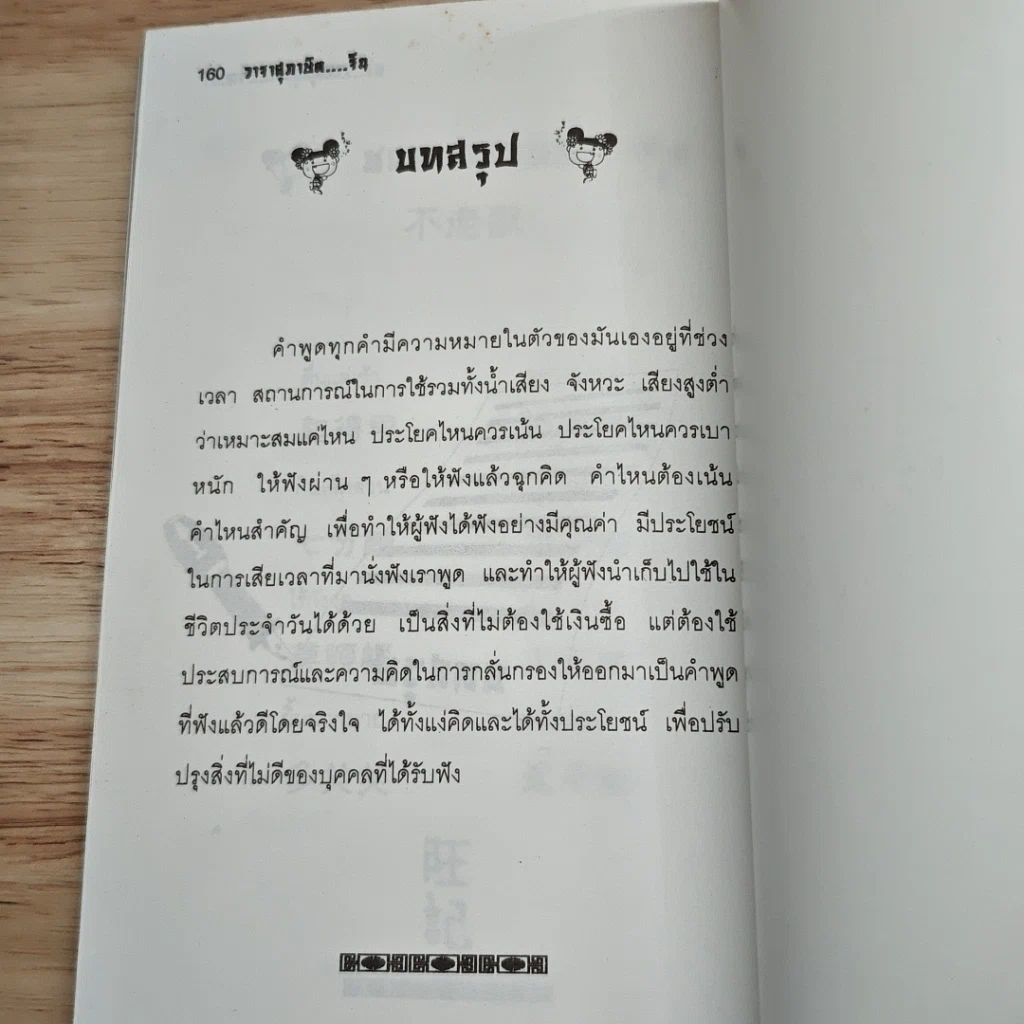 160 วาราสุภาษิต....จีน
บทสรุป
คำพูดทุกคำมีความหมายในตัวของมันเองอยู่ที่ช่วง
เวลา สถานการณ์ในการใช้รวมทั้งน้ำเสียง จังหวะ เสียงสูงต่ำ
ว่าเหมาะสมแค่ไหน ประโยคไหนควรเน้น ประโยคไหนควรเบา
หนัก ให้ฟังผ่าน ๆ หรือให้ฟังแล้วฉุกคิด คำไหนต้องเน้น
คำไหนสำคัญ เพื่อทำให้ผู้ฟังได้ฟังอย่างมีคุณค่า มีประโยชน์
ในการเสียเวลาที่มานั่งฟังเราพูด และทำให้ผู้ฟังนำเก็บไปใช้ใน
ชีวิตประจำวันได้ด้วย เป็นสิ่งที่ไม่ต้องใช้เงินซื้อ แต่ต้องใช้
ประสบการณ์และความคิดในการกลั่นกรองให้ออกมาเป็นคำพูด
ที่ฟังแล้วดีโดยจริงใจ ได้ทั้งแง่คิดและได้ทั้งประโยชน์ เพื่อปรับ
ปรุงสิ่งที่ไม่ดีของบุคคลที่ได้รับฟัง